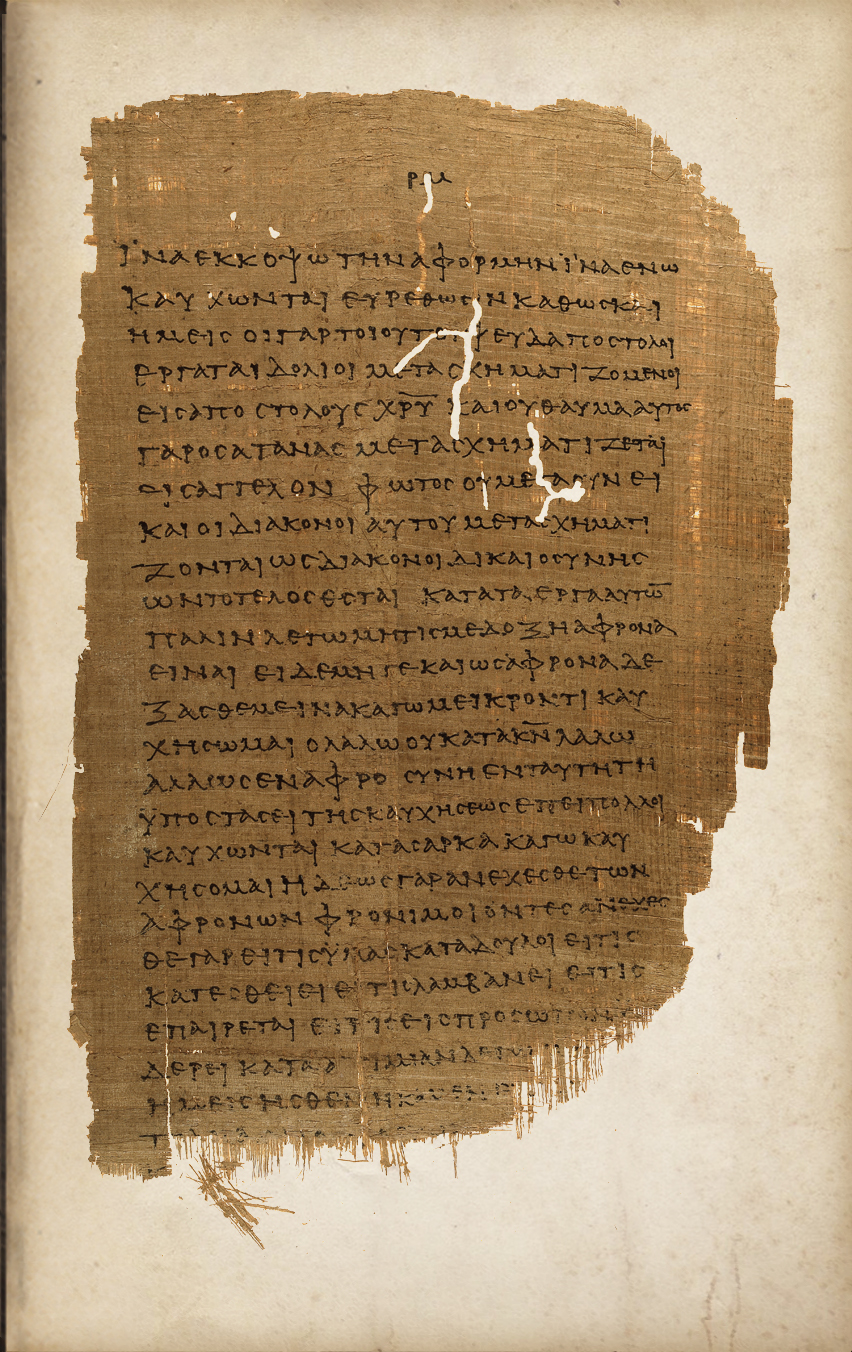 ρμ
ϊναεκκοψωτηναφορμηνϊναενω
καυχωνταιευρεθωσινκαθωσκαι
ημειςοιγαρτοιουτοιψευδαποστολοι
εργαταιδολιοιμετασχηματιζομενοι
εισαποστολουςχρυκαιουθαυμααυτος
γαροσατανασμετασχηματιζεται
εισαγγελονφωτοςουμεγαουνει
καιοιδιακονοιαυτουμετασχηματι
ζονταιωςδιακονοιδικαιοσυνης
ωντοτελοςεσταικαταταεργααυτω̅
παλινλεγωμητιςμεδοξηαφρονα
ειναιειδεμηγεκαιωςαφροναδε
ξασθεμεινακαγωμεικροντικαυ
χησωμαιολαλωουκατακ̅ν̅λαλω
αλλωςεναφροσυνηενταυτητη
υποστασειτηςκαυχησεωςεπειπολλοι
καυχωνταικατασαρκακαγωκαυ
χησομαιηδεωςγαρανεχεσθετων
αφρονωνφρονιμοιοντεςανεχες
θεγαρειτιςϋμαςκαταδουλοιειτις
κατεσθειειειτιςλαμβανειειτις
επαιρεταιειτιςειςπροσωπον
δερεικατα
ημεις